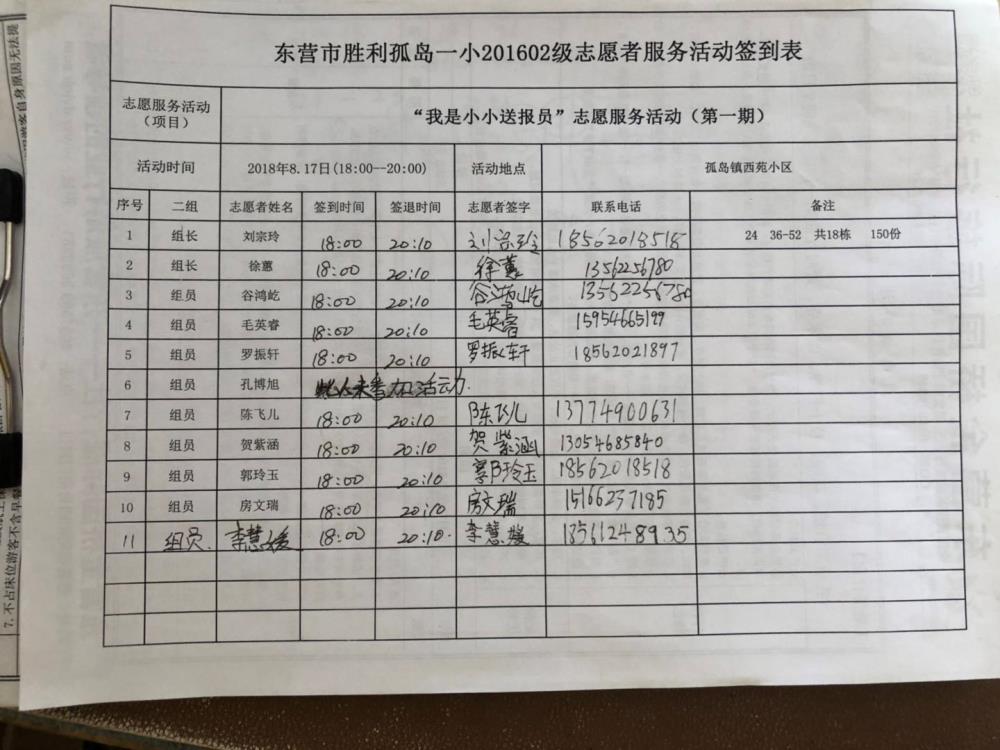 东营市胜利孤岛一小201602级志愿者服务活动签到表
志愿服务活动（项目） “我是小小送报员”志愿服务活动（第一期）
活动时间 2018年8.17日(18:00--20:00) 活动地点 孤岛镇西苑小区
序号 二组 志愿者姓名 签到时间 签退时间 志愿者签字 联系电话 备注
1 组长 刘宗玲 18:00 20:10 刘宗玲 18562018518 24 36-52 共18栋 150份
2 组长 徐蕙 18:00 20:10 徐蕙 13562256780
3 组员 谷鸿屹 18:00 20:10 谷鸿屹 13562256780
4 组员 毛英睿 18:00 20:10 毛英睿 15954665199
5 组员 罗振轩 18:00 20:10 罗振轩 18562021897
6 组员 孔博旭 此人未参加活动.
7 组员 陈飞儿 18:00 20:10 陈飞儿 13774900631
8 组员 贺紫涵 18:00 20:10 贺紫涵 13054685840
9 组员 郭玲玉 18:00 20:10 郭玲玉 18562018518
10 组员 房文瑞 18:00 20:10 房文瑞 15166237185
11 组员. 李慧媛 18:00 20:10. 李慧媛 18561248935
7. 不占床位游客不含早餐